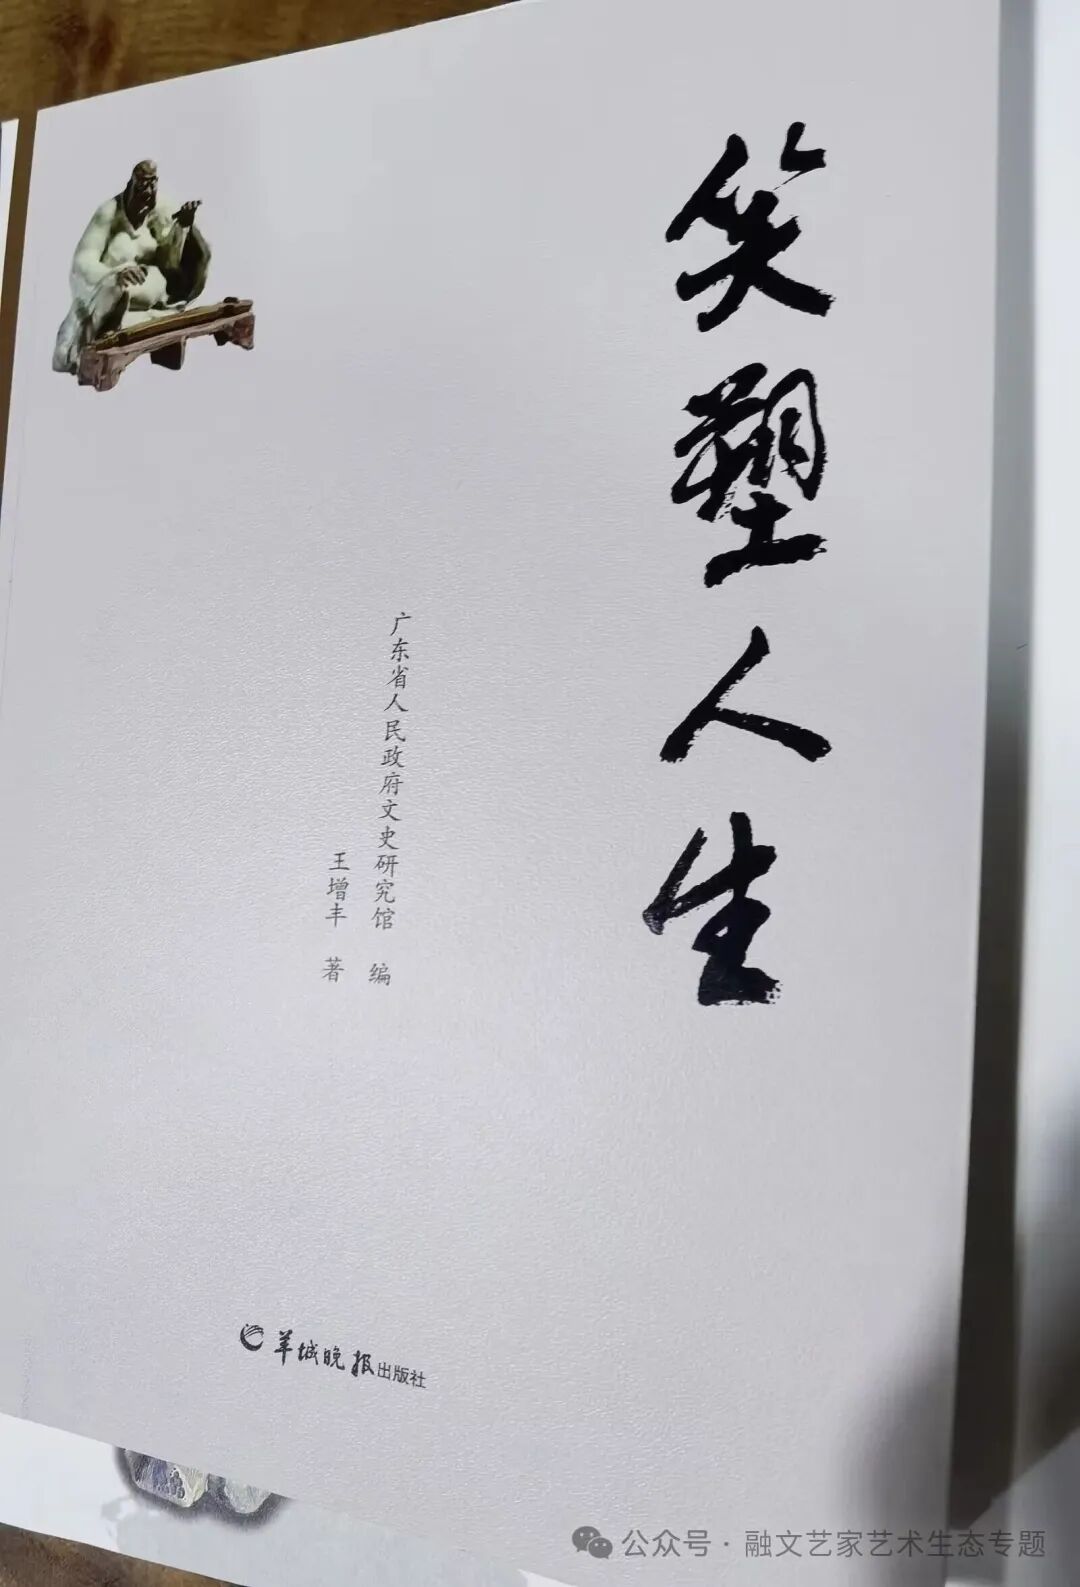 笑塑人生
广东省人民政府文史研究馆 编
王增丰 著
羊城晚报出版社
公众号·融文艺家艺术生态专题